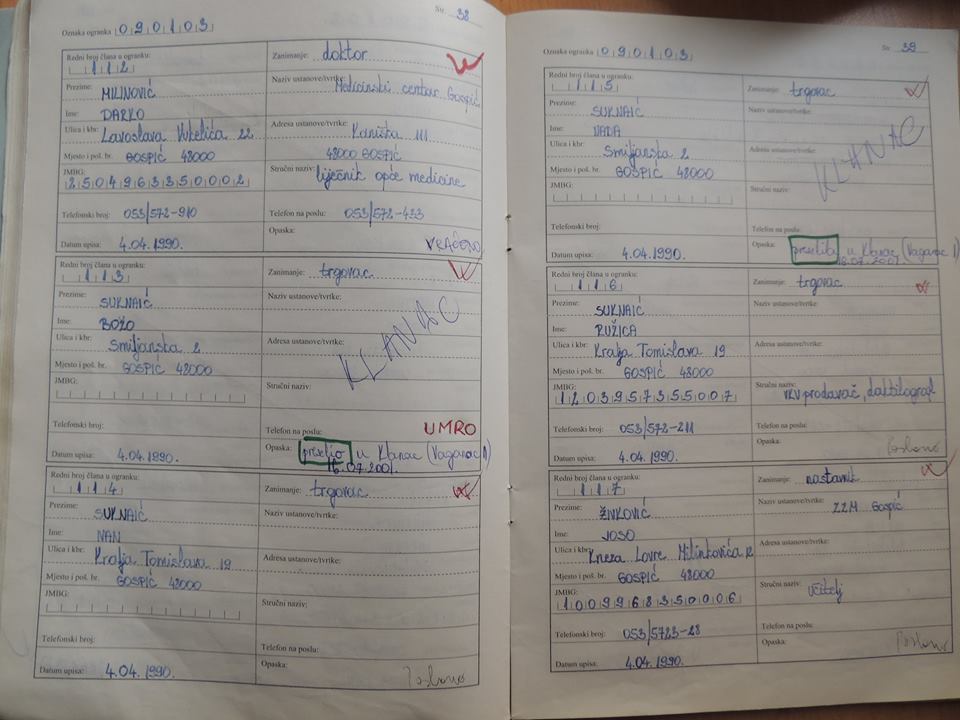 Str. 38
Oznaka ogranka 090103
Redni broj člana u ogranku: 112
Zanimanje: doktor
Prezime: MILINOVIĆ
Naziv ustanove/tvrtke: Medicinski centar Gospić
Ime: DARKO
Ulica i kbr: Lavoslava Vukelića 22
Adresa ustanove/tvrtke: Kaniška 111
Mjesto i poš. br. GOSPIĆ 48000
48000 GOSPIĆ
JMBG: 2504963350002
Stručni naziv: liječnik opće medicine
Telefonski broj: 053/572-910
Telefon na poslu: 053/572-433
Datum upisa: 4.04.1990.
Opaska: VRAĆENO
Redni broj člana u ogranku: 113
Zanimanje: trgovac
Prezime: SUKNAIĆ
Naziv ustanove/tvrtke:
Ime: BOŽO
KLANAC
Ulica i kbr: Smiljanska 2
Adresa ustanove/tvrtke:
Mjesto i poš. br. GOSPIĆ 48000
JMBG:
Stručni naziv:
Telefonski broj:
Telefon na poslu: UMRO
Datum upisa: 4.04.1990.
Opaska: preselio u Klanac (Vaganac 1)
16.07.2001.
Redni broj člana u ogranku: 114
Zanimanje: trgovac
Prezime: SUKNAIĆ
Naziv ustanove/tvrtke:
Ime: NAN
Ulica i kbr: Kralja Tomislava 19
Adresa ustanove/tvrtke:
Mjesto i poš. br. GOSPIĆ 48000
JMBG:
Stručni naziv:
Telefonski broj:
Telefon na poslu:
Datum upisa: 4.04.1990.
Opaska: Poslano
Str. 39
Oznaka ogranka 090103
Redni broj člana u ogranku: 115
Zanimanje: trgovac
Prezime: SUKNAIĆ
Naziv ustanove/tvrtke:
Ime: NADA
KLANAC
Ulica i kbr: Smiljanska 2
Adresa ustanove/tvrtke:
Mjesto i poš. br. GOSPIĆ 48000
JMBG:
Stručni naziv:
Telefonski broj:
Telefon na poslu:
Datum upisa: 4.04.1990.
Opaska: preselila u Klanac (Vaganac 1)
16.07.2001.
Redni broj člana u ogranku: 116
Zanimanje: trgovac
Prezime: SUKNAIĆ
Naziv ustanove/tvrtke:
Ime: RUŽICA
Ulica i kbr: Kralja Tomislava 19
Adresa ustanove/tvrtke:
Mjesto i poš. br. GOSPIĆ 48000
JMBG: 1203957355007
Stručni naziv: VKV prodavač, daktilograf
Telefonski broj: 053/572-211
Telefon na poslu:
Datum upisa: 4.04.1990.
Opaska: Poslano
Redni broj člana u ogranku: 117
Zanimanje: nastavnik
Prezime: ŽIVKOVIĆ
Naziv ustanove/tvrtke: ZZM Gospić
Ime: JOSO
Ulica i kbr: Kneza Lovre Milinkovića
Adresa ustanove/tvrtke:
Mjesto i poš. br. GOSPIĆ 48000
JMBG: 1009968350006
Stručni naziv: učitelj
Telefonski broj: 053/5723-28
Telefon na poslu:
Datum upisa: 4.04.1990.
Opaska: Poslano